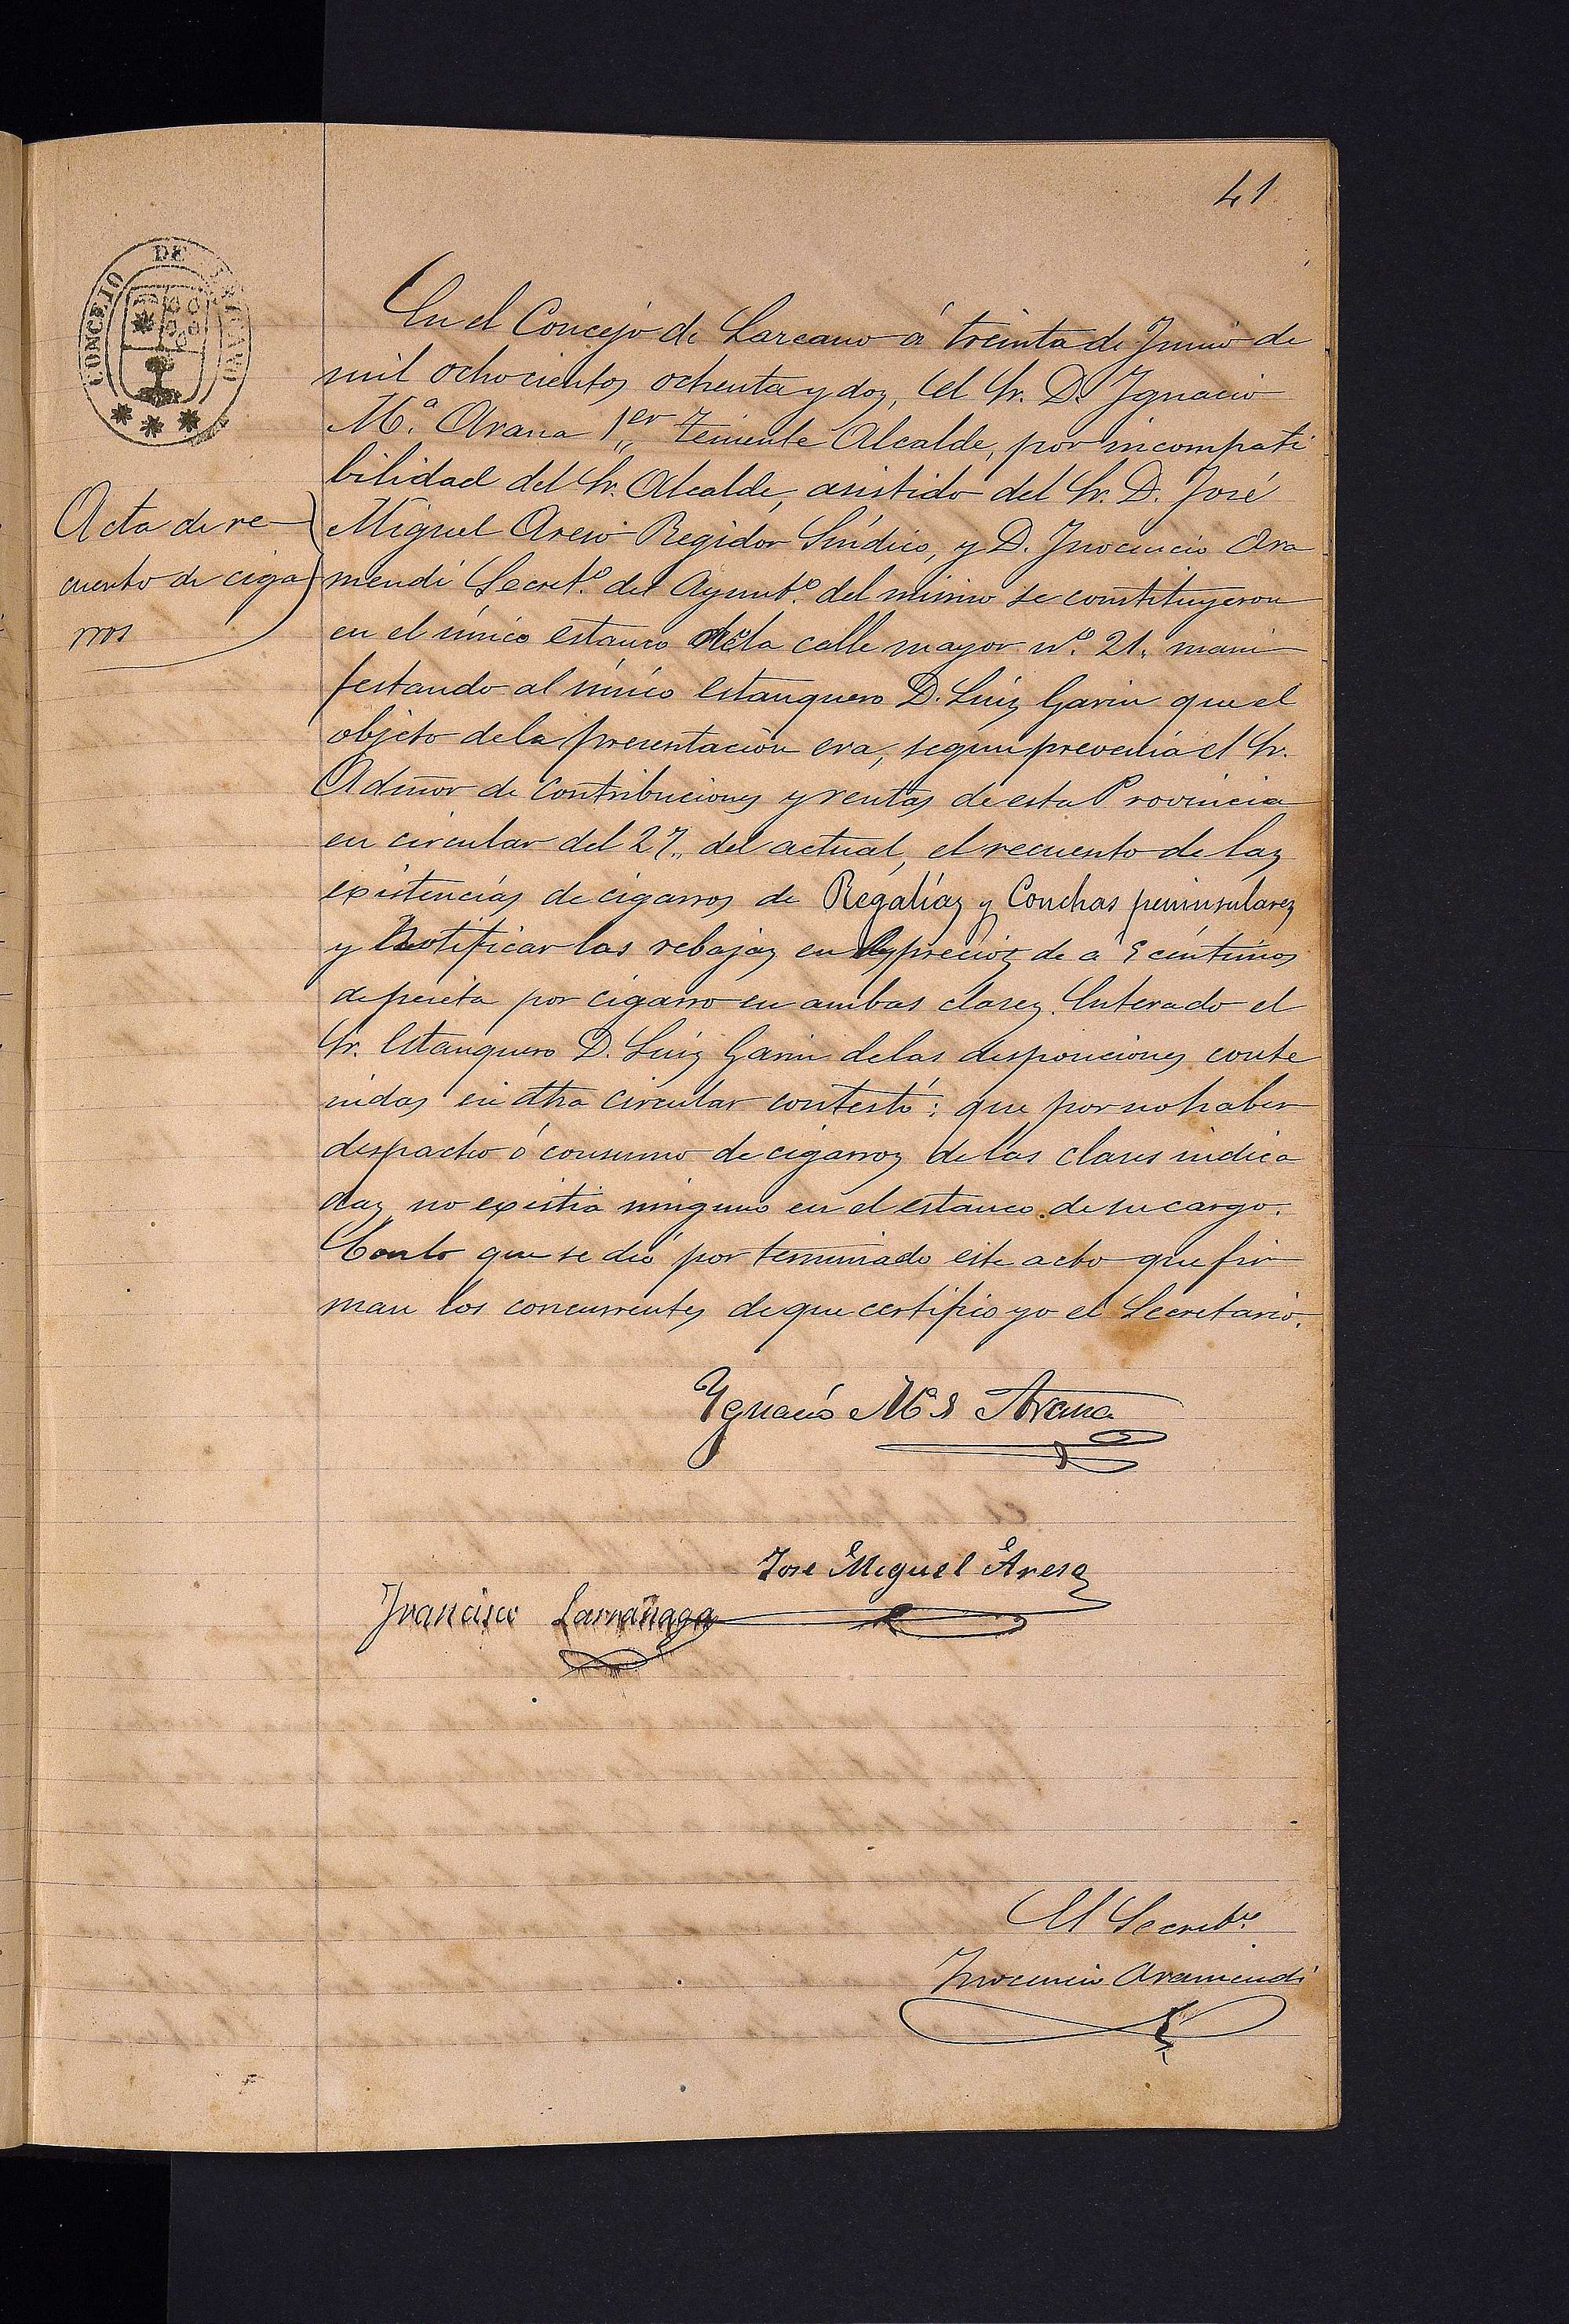 41
CONCEJO DE LAZCANO
En el Concejo de Lazcano á treinta de Junio de
mil ochocientos ochenta y dos, el Sr. D. Ignacio
M.ª Arana 1er Teniente Alcalde, por incompati
bilidad del Sr. Alcalde, asistido del Sr. D. José
Acta de re
cuento de ciga
rros
Miguel Areso Regidor Síndico, y D. Inocencio Ara
mendi Secret.º del Ayunt.º del mismo se constituyeron
en el único estanco de la calle mayor n.º 21, mani
festando al único Estanquero D. Luiz Garin que el
objeto de la presentación era, segun prevenia el Sr.
Admor de Contribuciones y rentas de esta Provincia
en circular del 27,, del actual, el recuento de las
existencias de cigarros de Regalías y Conchas peninsulares
y Notificar las rebajas en los precios de á 5 céntimos
de peseta por cigarro en ambas clases. Enterado el
Sr. Estanquero D. Luiz Garin de las disposiciones conte
nidas en dha circular contestó: que por no haber
despacho ó consumo de cigarros de las clases indica
das no existia ninguno en el estanco de su cargo.
Con lo que se dió por terminado este acto que fir
man los concurrentes de que certifico yo el Secretario.
Ygnacio M.ª Arana
Jose Miguel Areso
Francisco Larrañaga
El Secret.º
Inocencio Aramendi